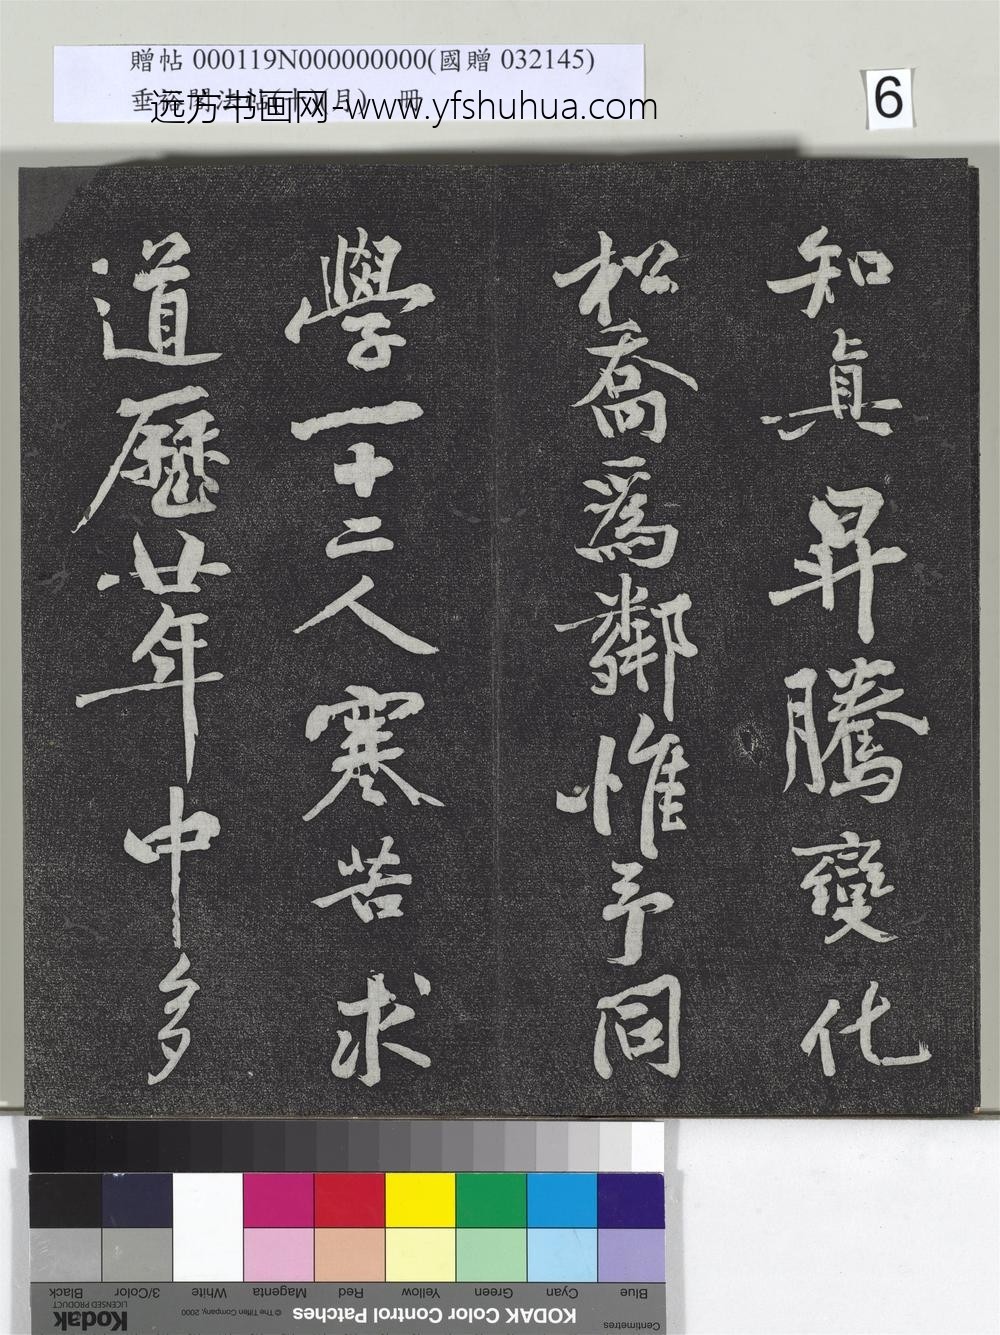 贈帖 000119N000000000(國贈 032145)
远方书画网-www.yfshuhua.com
6
知真昇騰變化
松喬為鄰惟予同
學一十二人寒苦求
道歷廿年中多
Blue
Cyan
Green
Yellow
Red
Magenta
White
3/Color
Black
Centimetres
KODAK Color Control Patches
© The Tiffen Company, 2000
Kodak
LICENSED PRODUCT